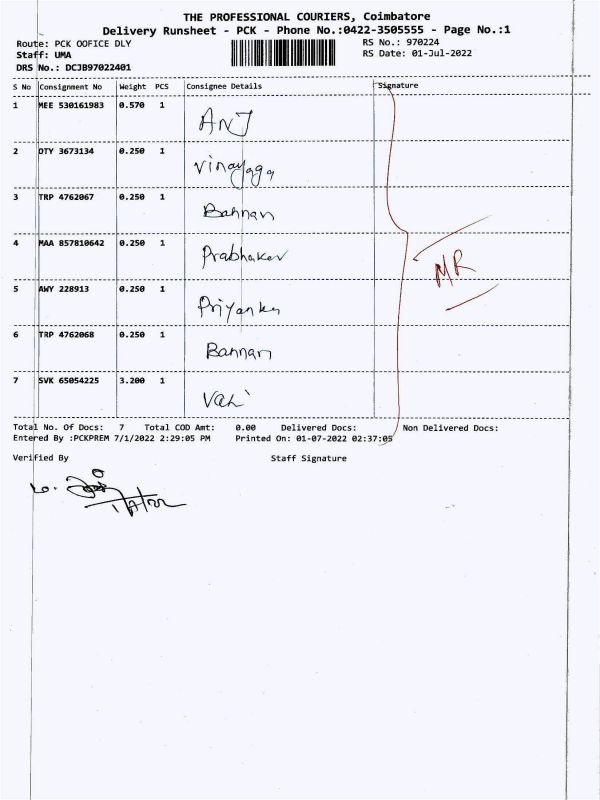 THE PROFESSIONAL COURIERS, Coimbatore
Delivery Runsheet - PCK - Phone No.:0422-3505555 - Page No.:1
Route: PCK OOFICE DLY RS No.: 970224
Staff: UMA RS Date: 01-Jul-2022
DRS No.: DCJB97022401
S No Consignment No Weight PCS Consignee Details Signature
1 MEE 530161983 0.570 1 ANJ
2 DTY 3673134 0.250 1 Vinayaga
3 TRP 4762067 0.250 1 Bannan
4 MAA 857810642 0.250 1 Prabhaker
MR
5 AWY 228913 0.250 1 Priyanka
6 TRP 4762068 0.250 1 Bannan
7 SVK 65054225 3.200 1
Total No. Of Docs: 7 Total COD Amt: 0.00 Delivered Docs: Non Delivered Docs:
Entered By :PCKPREM 7/1/2022 2:29:05 PM Printed On: 01-07-2022 02:37:05
Verified By Staff Signature